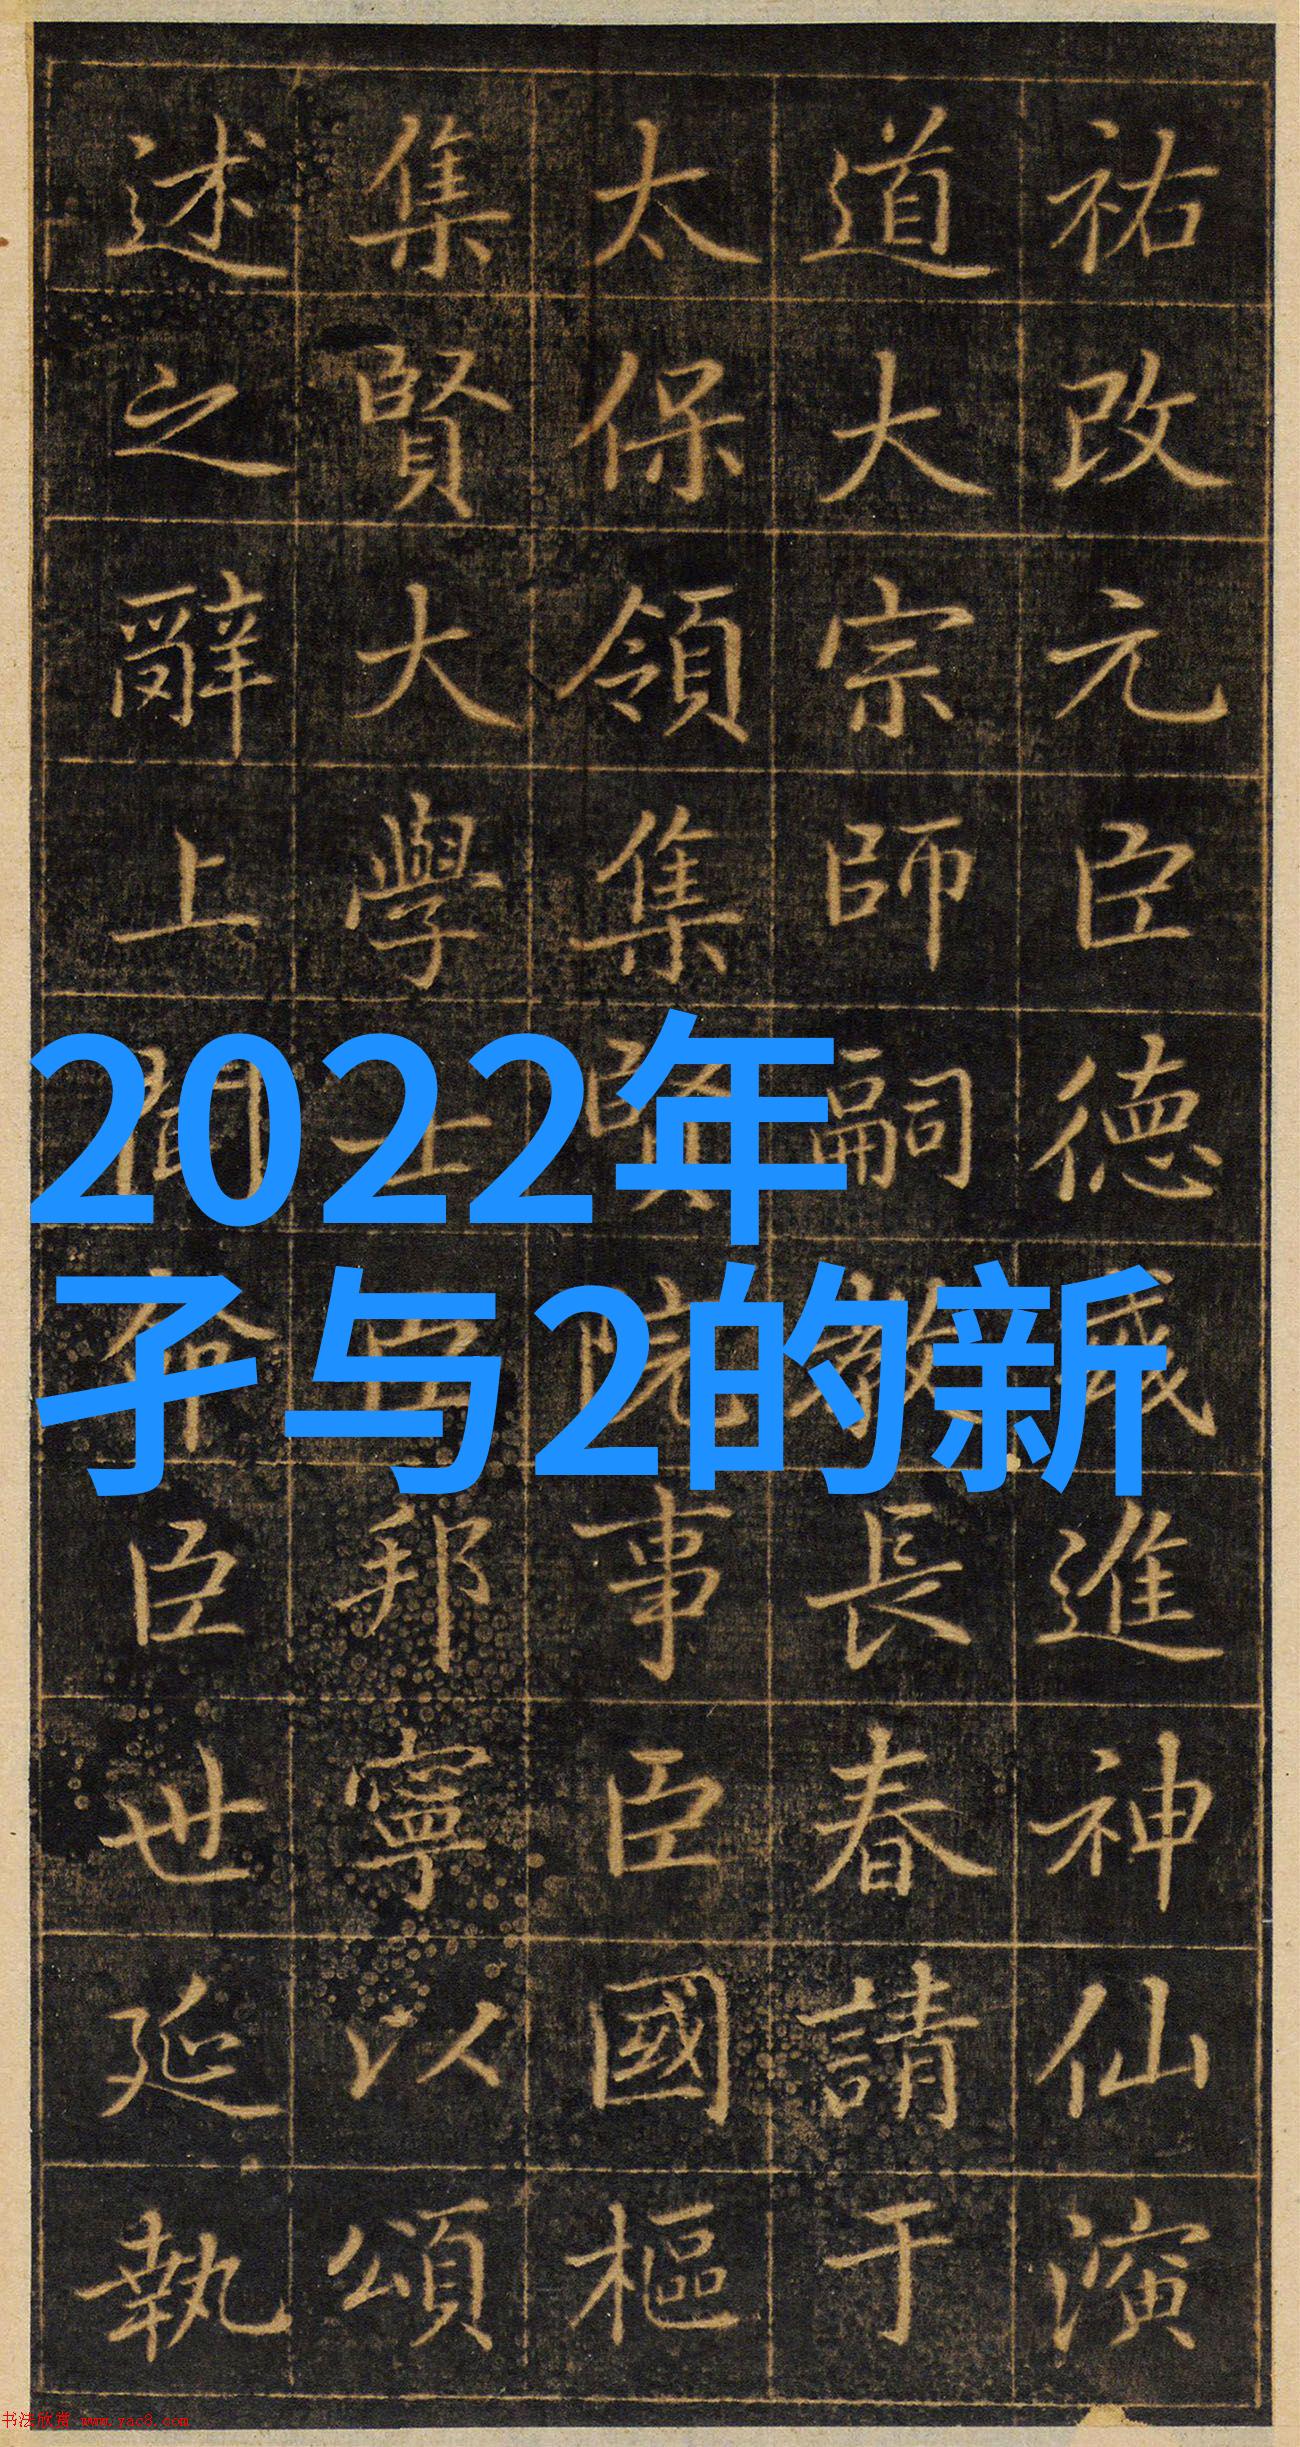 2022年
孑与2的新
祐改元臣德進神仙演
道大宗師嗣教長春請于
太保領集賢院事臣國樞
集賢大學士臣邦寧以頌
述之辭上聞命臣世延執
书法欣赏 www.yac8.com